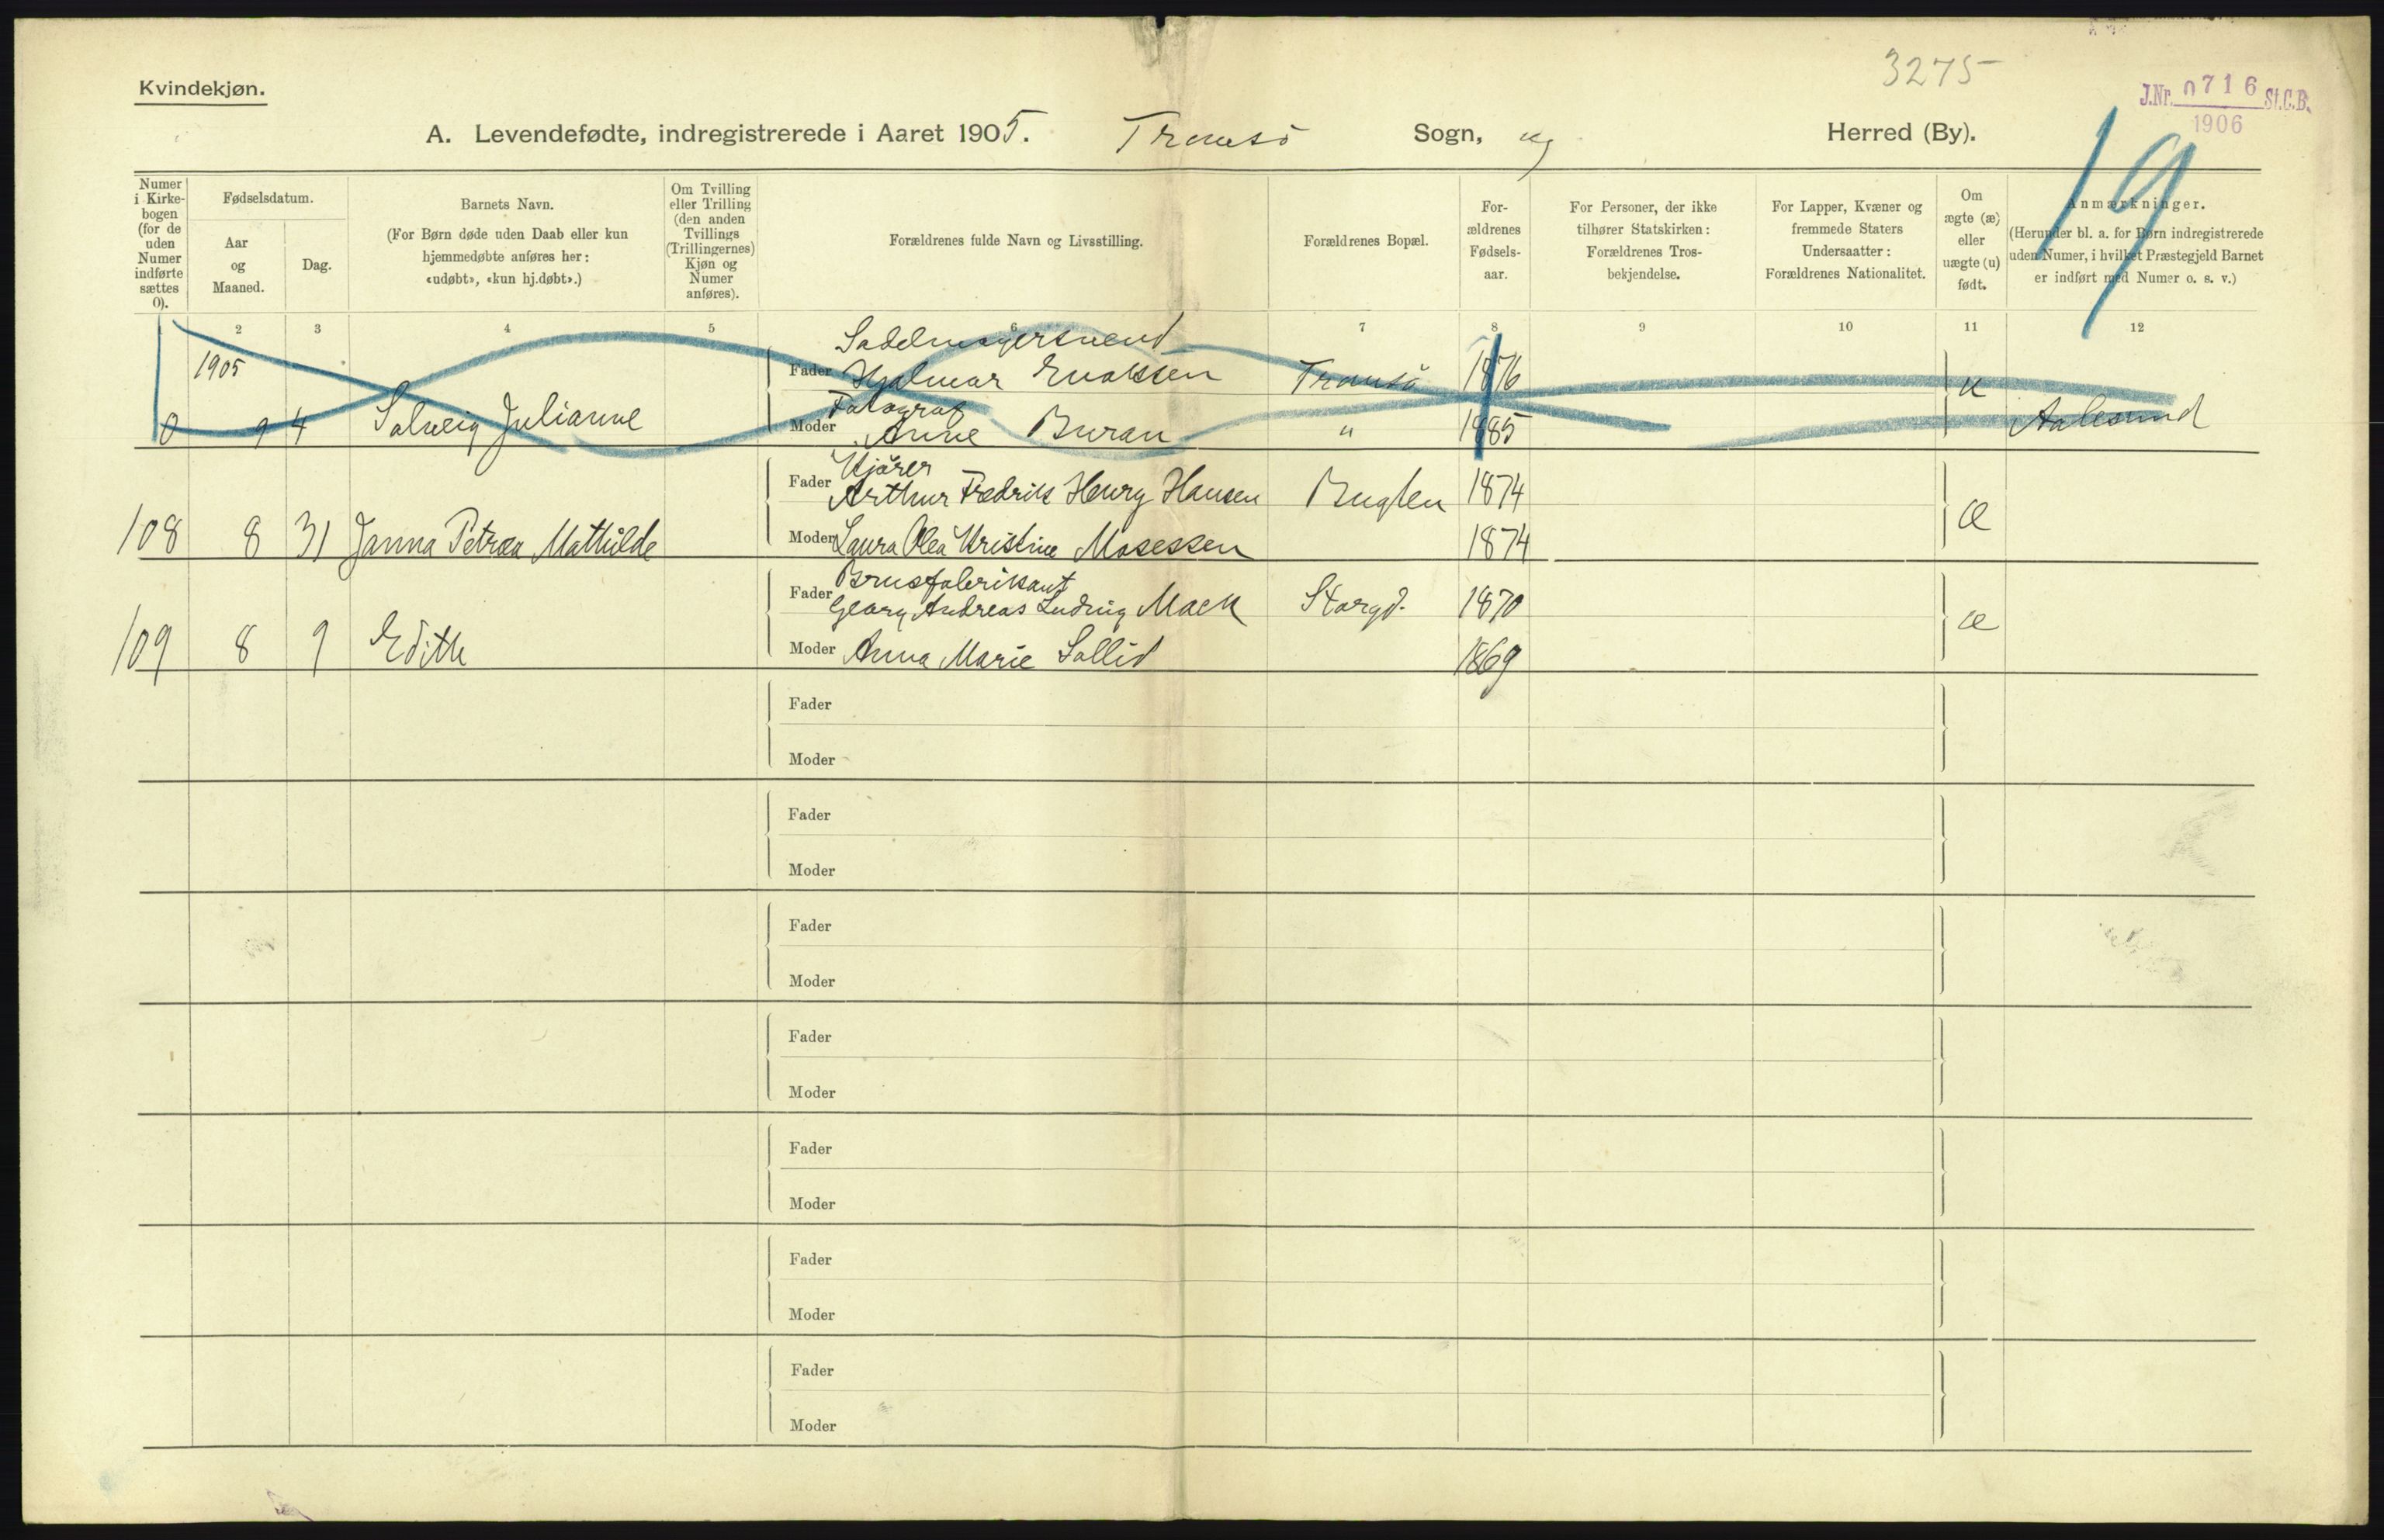 3275
Kvindekjøn.
J.Nr. 0716 St.C.B.
1906
A. Levendefødte, indregistrerede i Aaret 1905. Tromsö Sogn, og Herred (By).
19
Numer i Kirkebogen (for de uden Numer indførte sættes 0).
Fødselsdatum.
Aar og Maaned.
Dag.
Barnets Navn.
(For Børn døde uden Daab eller kun hjemmedøbte anføres her: «udøbt», «kun hj.døbt».)
Om Tvilling eller Trilling (den anden Tvillings (Trillingernes) Kjøn og Numer anføres).
Forældrenes fulde Navn og Livsstilling.
Forældrenes Bopæl.
For-ældrenes Fødsels-aar.
For Personer, der ikke tilhører Statskirken: Forældrenes Tros-bekjendelse.
For Lapper, Kvæner og fremmede Staters Undersaatter: Forældrenes Nationalitet.
Om ægte (æ) eller uægte (u) født.
Anmærkninger.
(Herunder bl. a. for Børn indregistrerede uden Numer, i hvilket Præstegjeld Barnet er indført med Numer o. s. v.)
1 2 3 4 5 6 7 8 9 10 11 12
Sadelmagersvend
1905 Fader Hjalmar Enoksen Tromsö 1876 u
Fotograf
0 9 4 Solveig Julianne Moder Anne Buran " 1885 Aalesund
Kjörer
Fader Arthur Fredrik Henry Hansen Bugten 1874 æ
108 8 31 Janna Petrea Mathilde Moder Laura Olea Kristine Mosessen 1874
Brusfabrikant
Fader Georg Andreas Ludvig Mack Storgd. 1870 æ
109 8 9 Edith Moder Anna Marie Sollid 1869
Fader
Moder
Fader
Moder
Fader
Moder
Fader
Moder
Fader
Moder
Fader
Moder
Fader
Moder